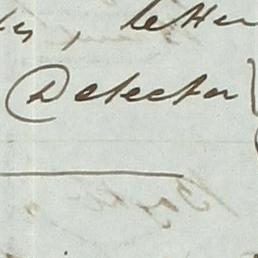 , letter
Detector